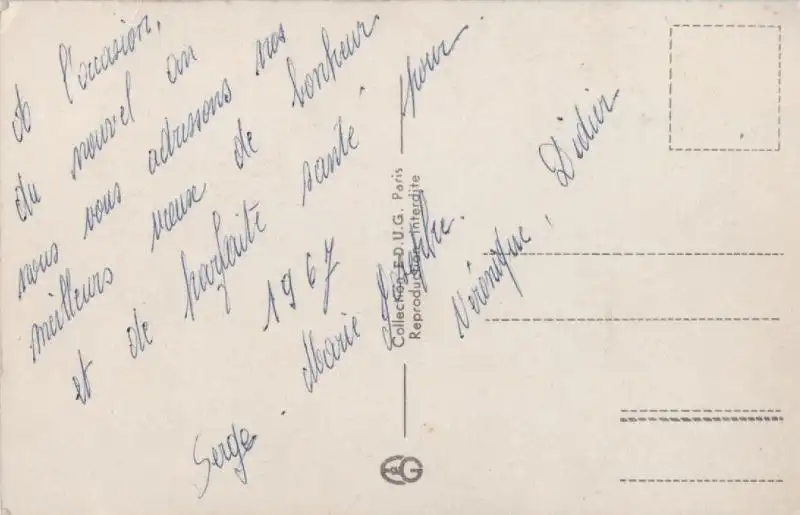 A l'occasion,
du nouvel an
nous vous adressons nos
meilleurs vœux de bonheur
et de parfaite santé pour
1967
Serge. Marie
Véronique, Didier
Collection E.D.U.G. Paris
Reproduction Interdite